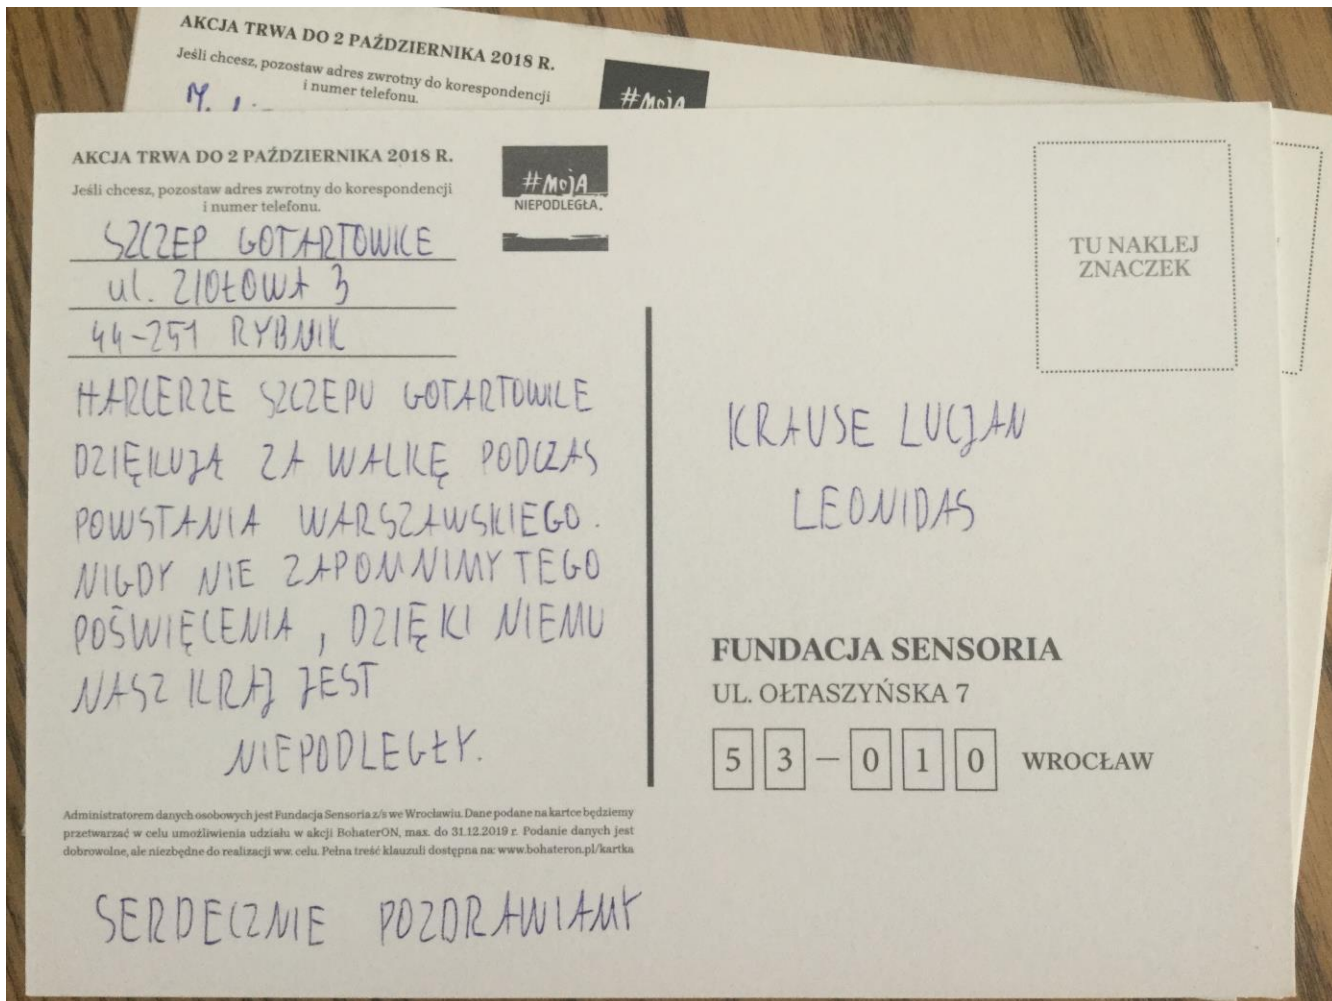 AKCJA TRWA DO 2 PAŹDZIERNIKA 2018 R.
Jeśli chcesz, pozostaw adres zwrotny do korespondencji
i numer telefonu.
#MOJA
AKCJA TRWA DO 2 PAŹDZIERNIKA 2018 R.
Jeśli chcesz, pozostaw adres zwrotny do korespondencji
i numer telefonu.
SZCZEP GOTARTOWICE
ul. ZIOŁOWA 3
44-251 RYBNIK
#MOJA
NIEPODLEGŁA.
HARCERZE SZCZEPU GOTARTOWICE
DZIĘKUJĄ ZA WALKĘ PODCZAS
POWSTANIA WARSZAWSKIEGO.
NIGDY NIE ZAPOMNIMY TEGO
POŚWIĘCENIA, DZIĘKI NIEMU
NASZ KRAJ JEST
NIEPODLEGŁY.
Administratorem danych osobowych jest Fundacja Sensoria z/s we Wrocławiu. Dane podane na kartce będziemy
przetwarzać w celu umożliwienia udziału w akcji BohaterON, max. do 31.12.2019 r. Podanie danych jest
dobrowolne, ale niezbędne do realizacji ww. celu. Pełna treść klauzuli dostępna na: www.bohateron.pl/kartka
SERDECZNIE POZDRAWIAMY
TU NAKLEJ
ZNACZEK
KRAUSE LUCJAN
LEONIDAS
FUNDACJA SENSORIA
UL. OŁTASZYŃSKA 7
53-010 WROCŁAW